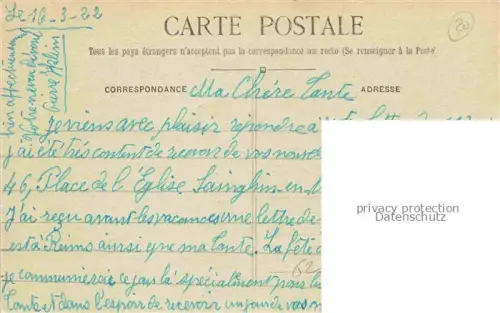 Le 16-3-22
CARTE POSTALE
Tous les pays étrangers n'acceptent pas la correspondance au recto (Se renseigner à la Poste)
CORRESPONDANCE
ADRESSE
Ma Chère Tante
Je viens avec plaisir répondre à
j'ai été très content de recevoir de vos nouv
46, Place de l'Eglise Sainghin-en-
J'ai reçu avant les vacances une lettre de
est à Reims ainsi que ma Tante. La fête
je communierai ce jour là spécialement pour
Tante et dans l'espoir de recevoir un jour de vos n
très affectionné
Pierre
62
privacy protection
Datenschutz